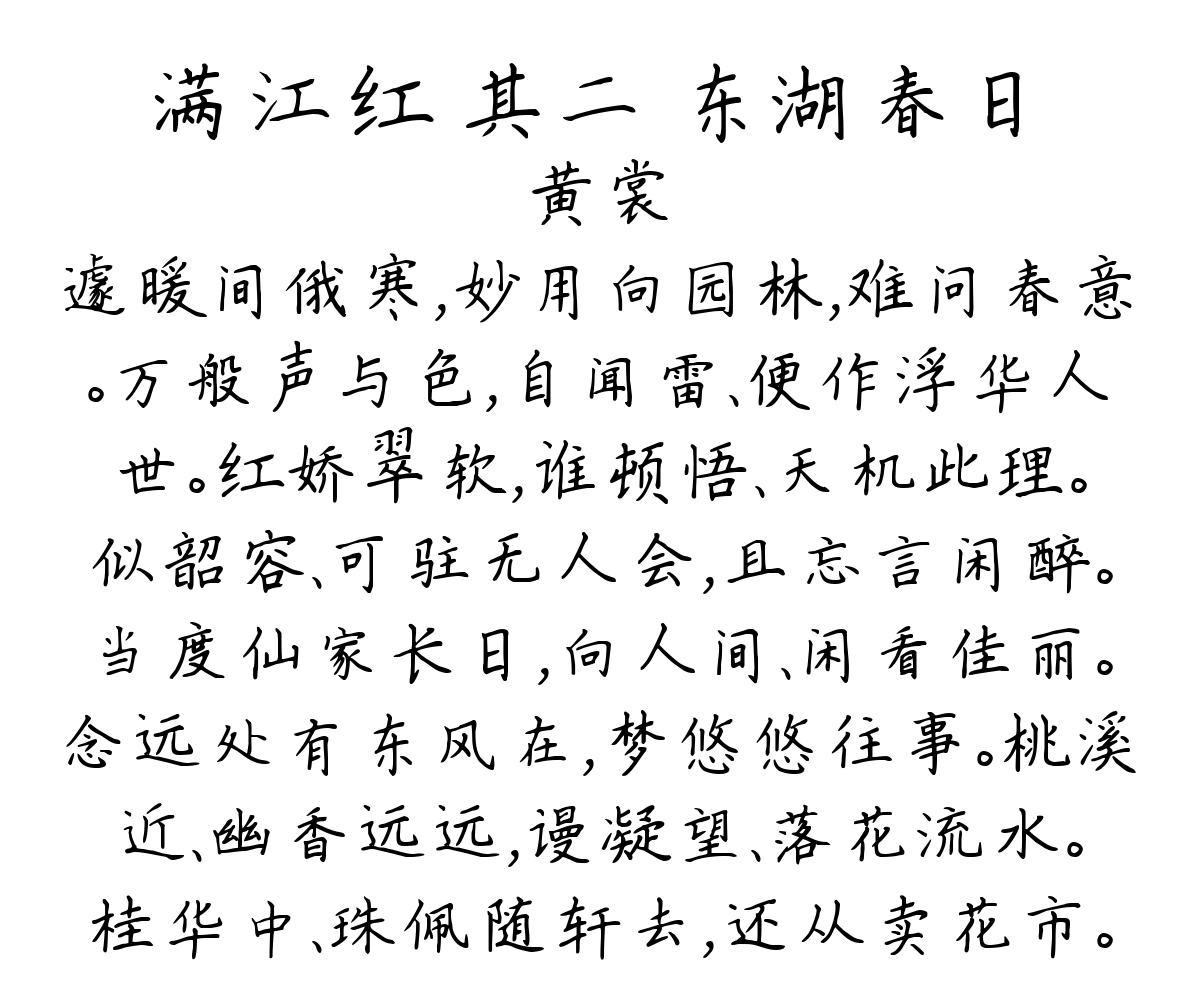 满江红 其二 东湖春日
黄裳
遽暖间俄寒,妙用向园林,难问春意
。万般声与色,自闻雷、便作浮华人
世。红娇翠软,谁顿悟、天机此理。
似韶容、可驻无人会,且忘言闲醉。
当度仙家长日,向人间、闲看佳丽。
念远处有东风在,梦悠悠往事。桃溪
近、幽香远远,谩凝望、落花流水。
桂华中、珠佩随轩去,还从卖花市。